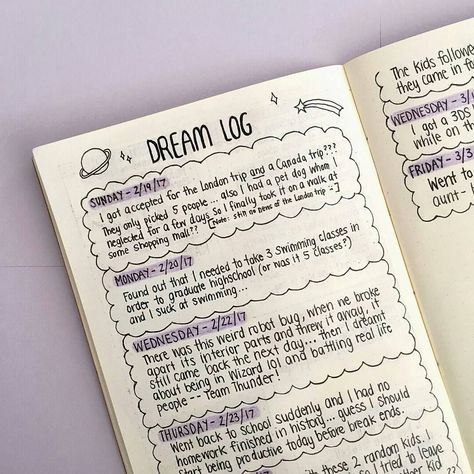 DREAM LOG
SUNDAY - 2/19/17
I got accepted for the London trip and a Canada trip???
They only picked 5 people... also I had a pet dog whom I
neglected for a few days so I finally took it on a walk at
some shopping mall?? [Note: still no news of the London trip :-]
MONDAY - 2/20/17
Found out that I needed to take 3 swimming classes in
order to graduate highschool (or was it 5 classes?)
and I suck at swimming...
WEDNESDAY - 2/22/17
There was this weird robot bug, when we broke
apart its interior parts and threw it away, it
still came back the next day... then I dreamt
about being in Wizard 101 and battling real life
people -- Team Thunder!
THURSDAY - 2/23/17
Went back to school suddenly and I had no
homework finished in history... guess I should
start being productive today before break ends.
these 2 random kids. I
so tried to leave
The kids followe
they came in fo
WEDNESDAY - 3/
I got a 3DS
while on th
FRIDAY - 3/3
Went to
aunt